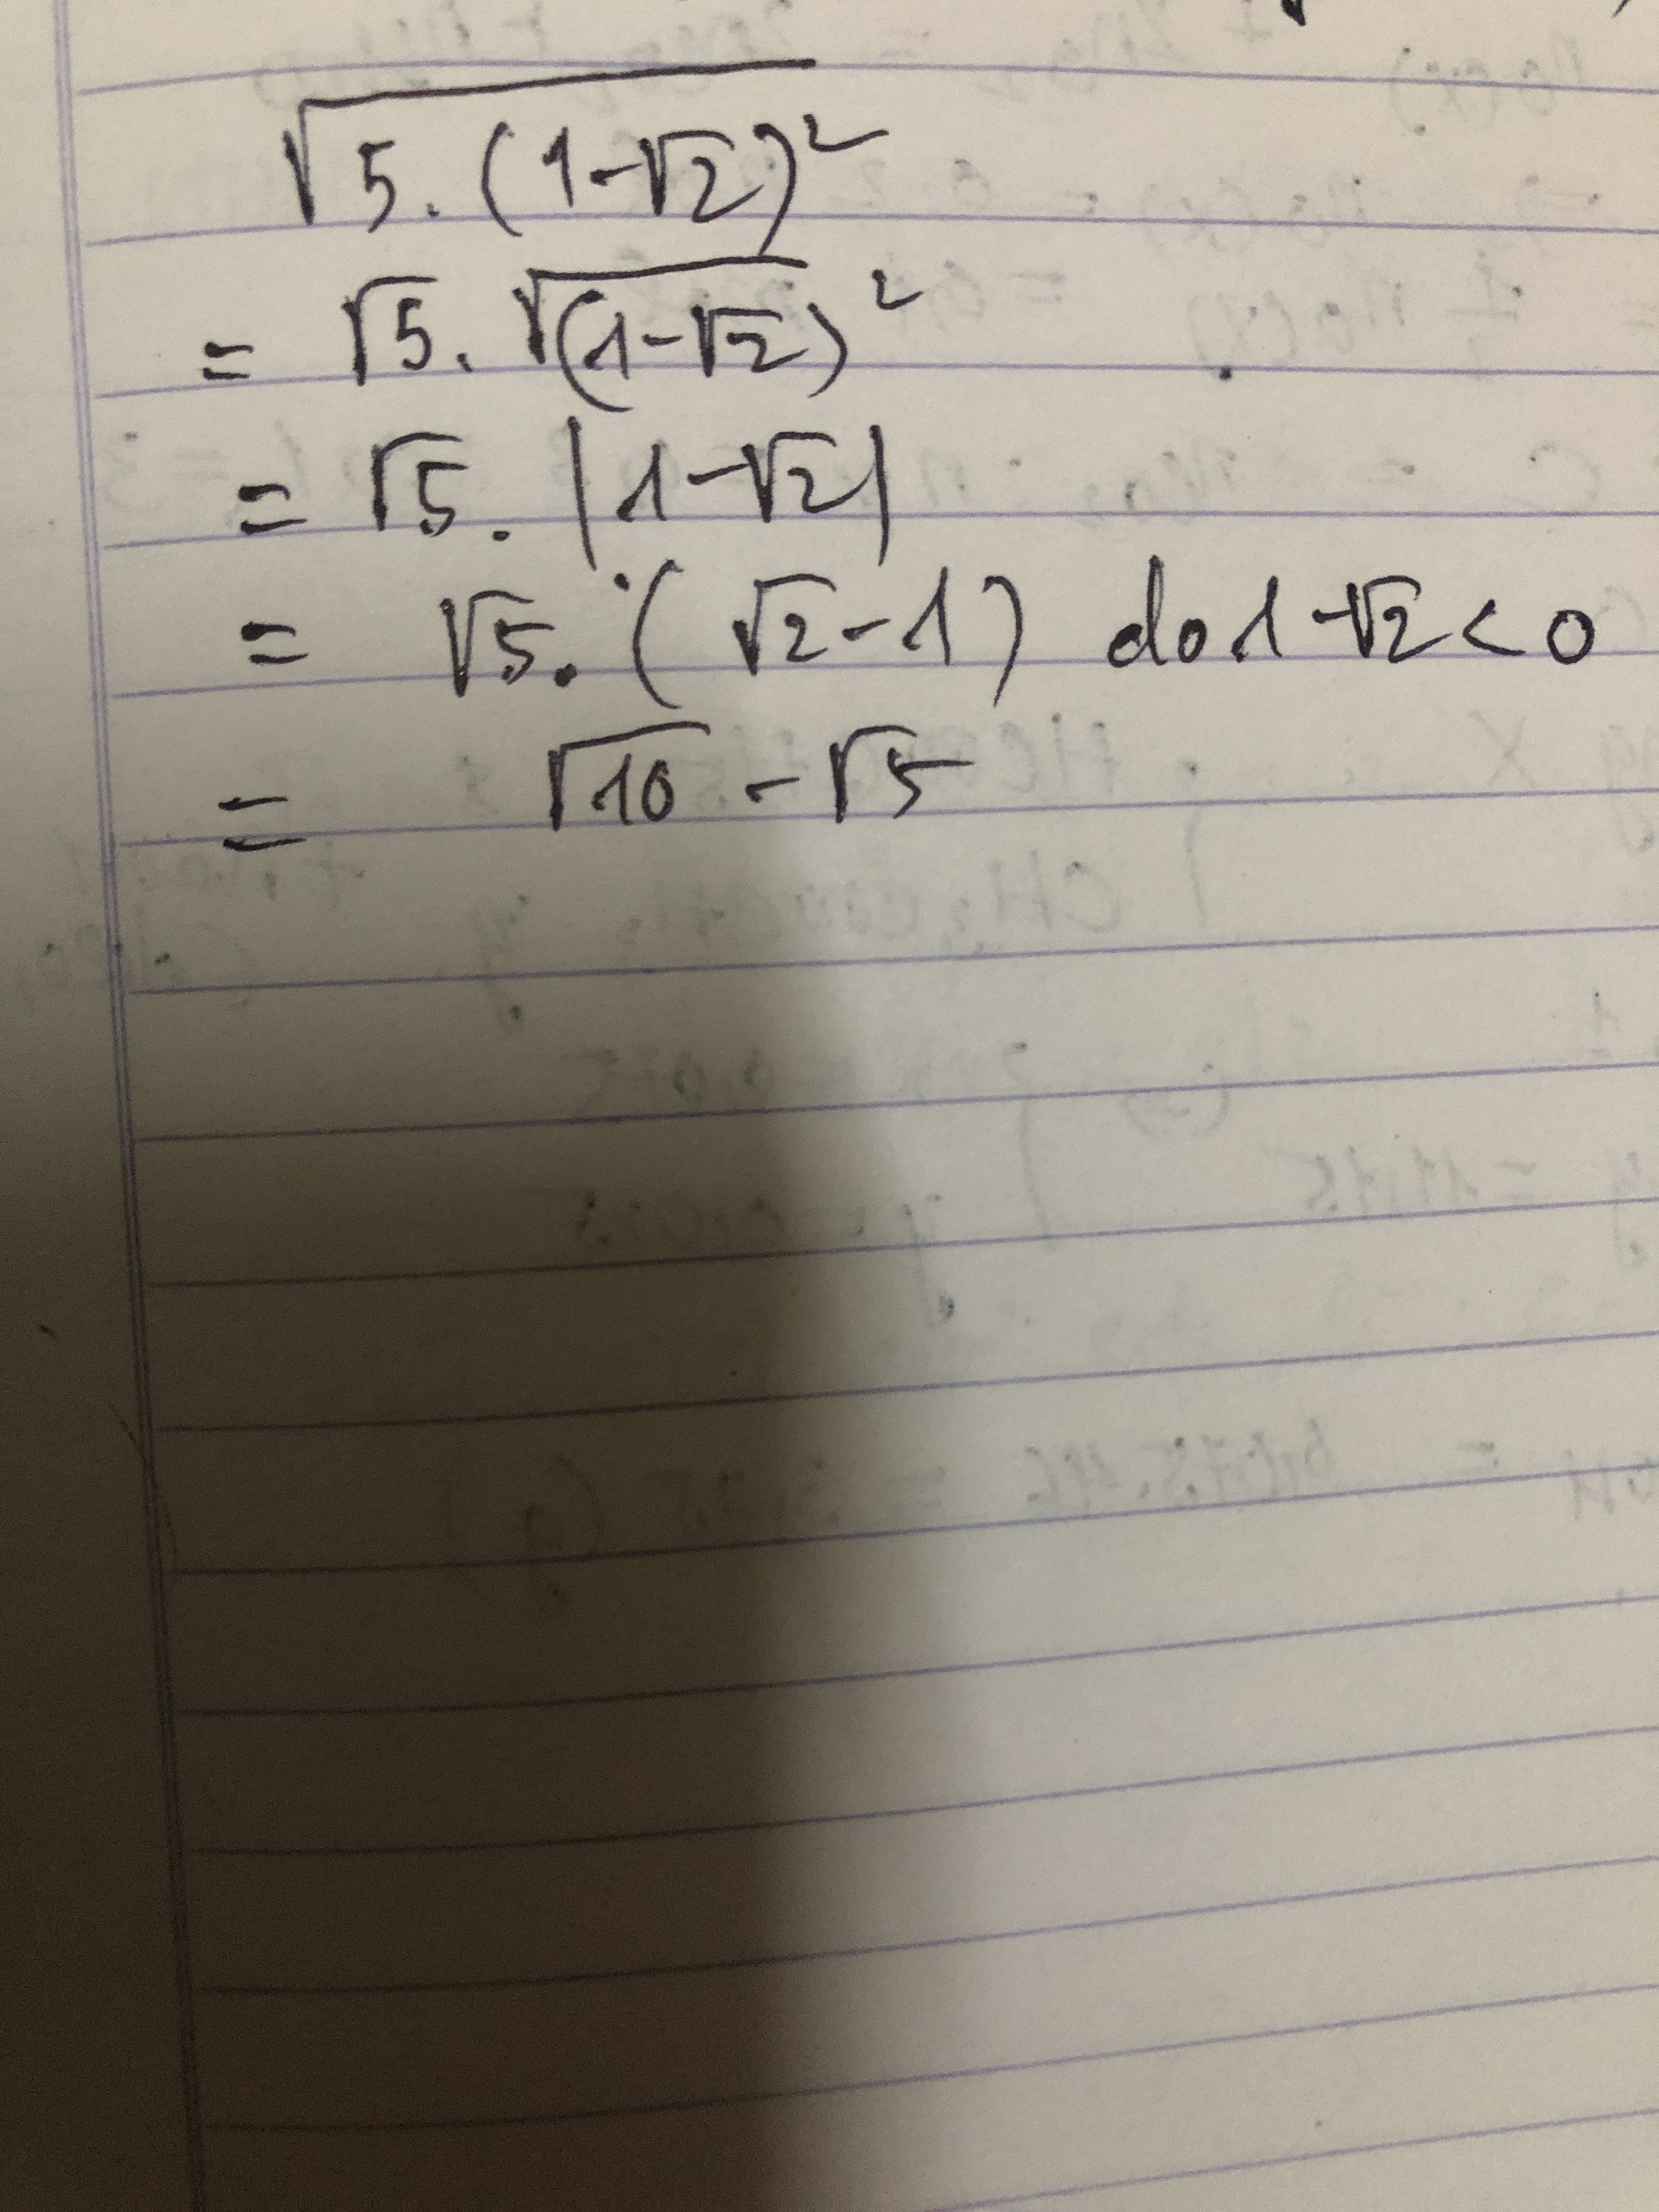 √5.(1-√2)²
= √5. √(1-√2)²
= √5. |1-√2|
= √5. (√2-1) do 1-√2 < 0
= √10 - √5